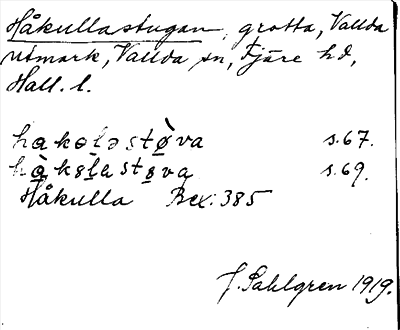 Håkullastugan, grotta, Vallda
utmark, Vallda sn, Fjäre hd,
Hall. l.
hakoləstø̀va s.67.
hàkɵl̠astɵva s.69.
Håkulla Bex: 385
J. Sahlgren 1919.